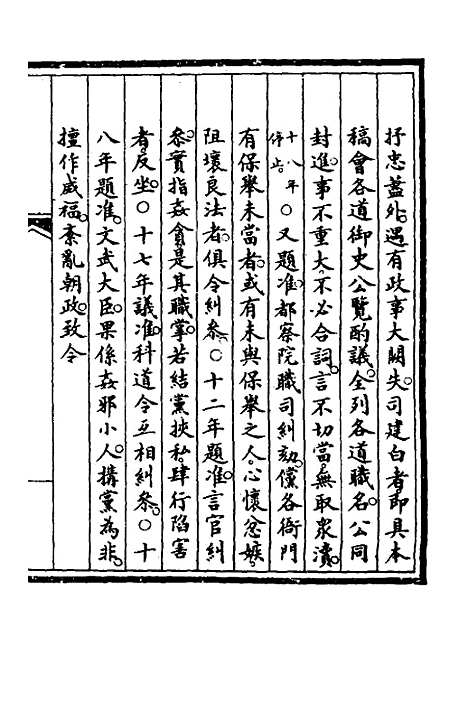 抒忠藎外。遇有政事大闕失。司建白者即具本
稿會各道御史公覽酌議。全列各道職名。公同
封進。事不重大。不必合詞。言不切當。無取衆瀆。
十八年停止。○又題准。都察院職司糾劾。儻各衙門
有保舉未當者。或有未與保舉之人。心懷忿嫉。
阻壞良法者。俱令糾叅。○十二年題准。言官糾
叅。實指姦貪。是其職掌。若結黨挾私。肆行陷害
者。反坐。○十七年議准。科道令互相糾叅。○十
八年題准。文武大臣。果係姦邪小人。搆黨為非。
擅作威福。紊亂朝政。致令